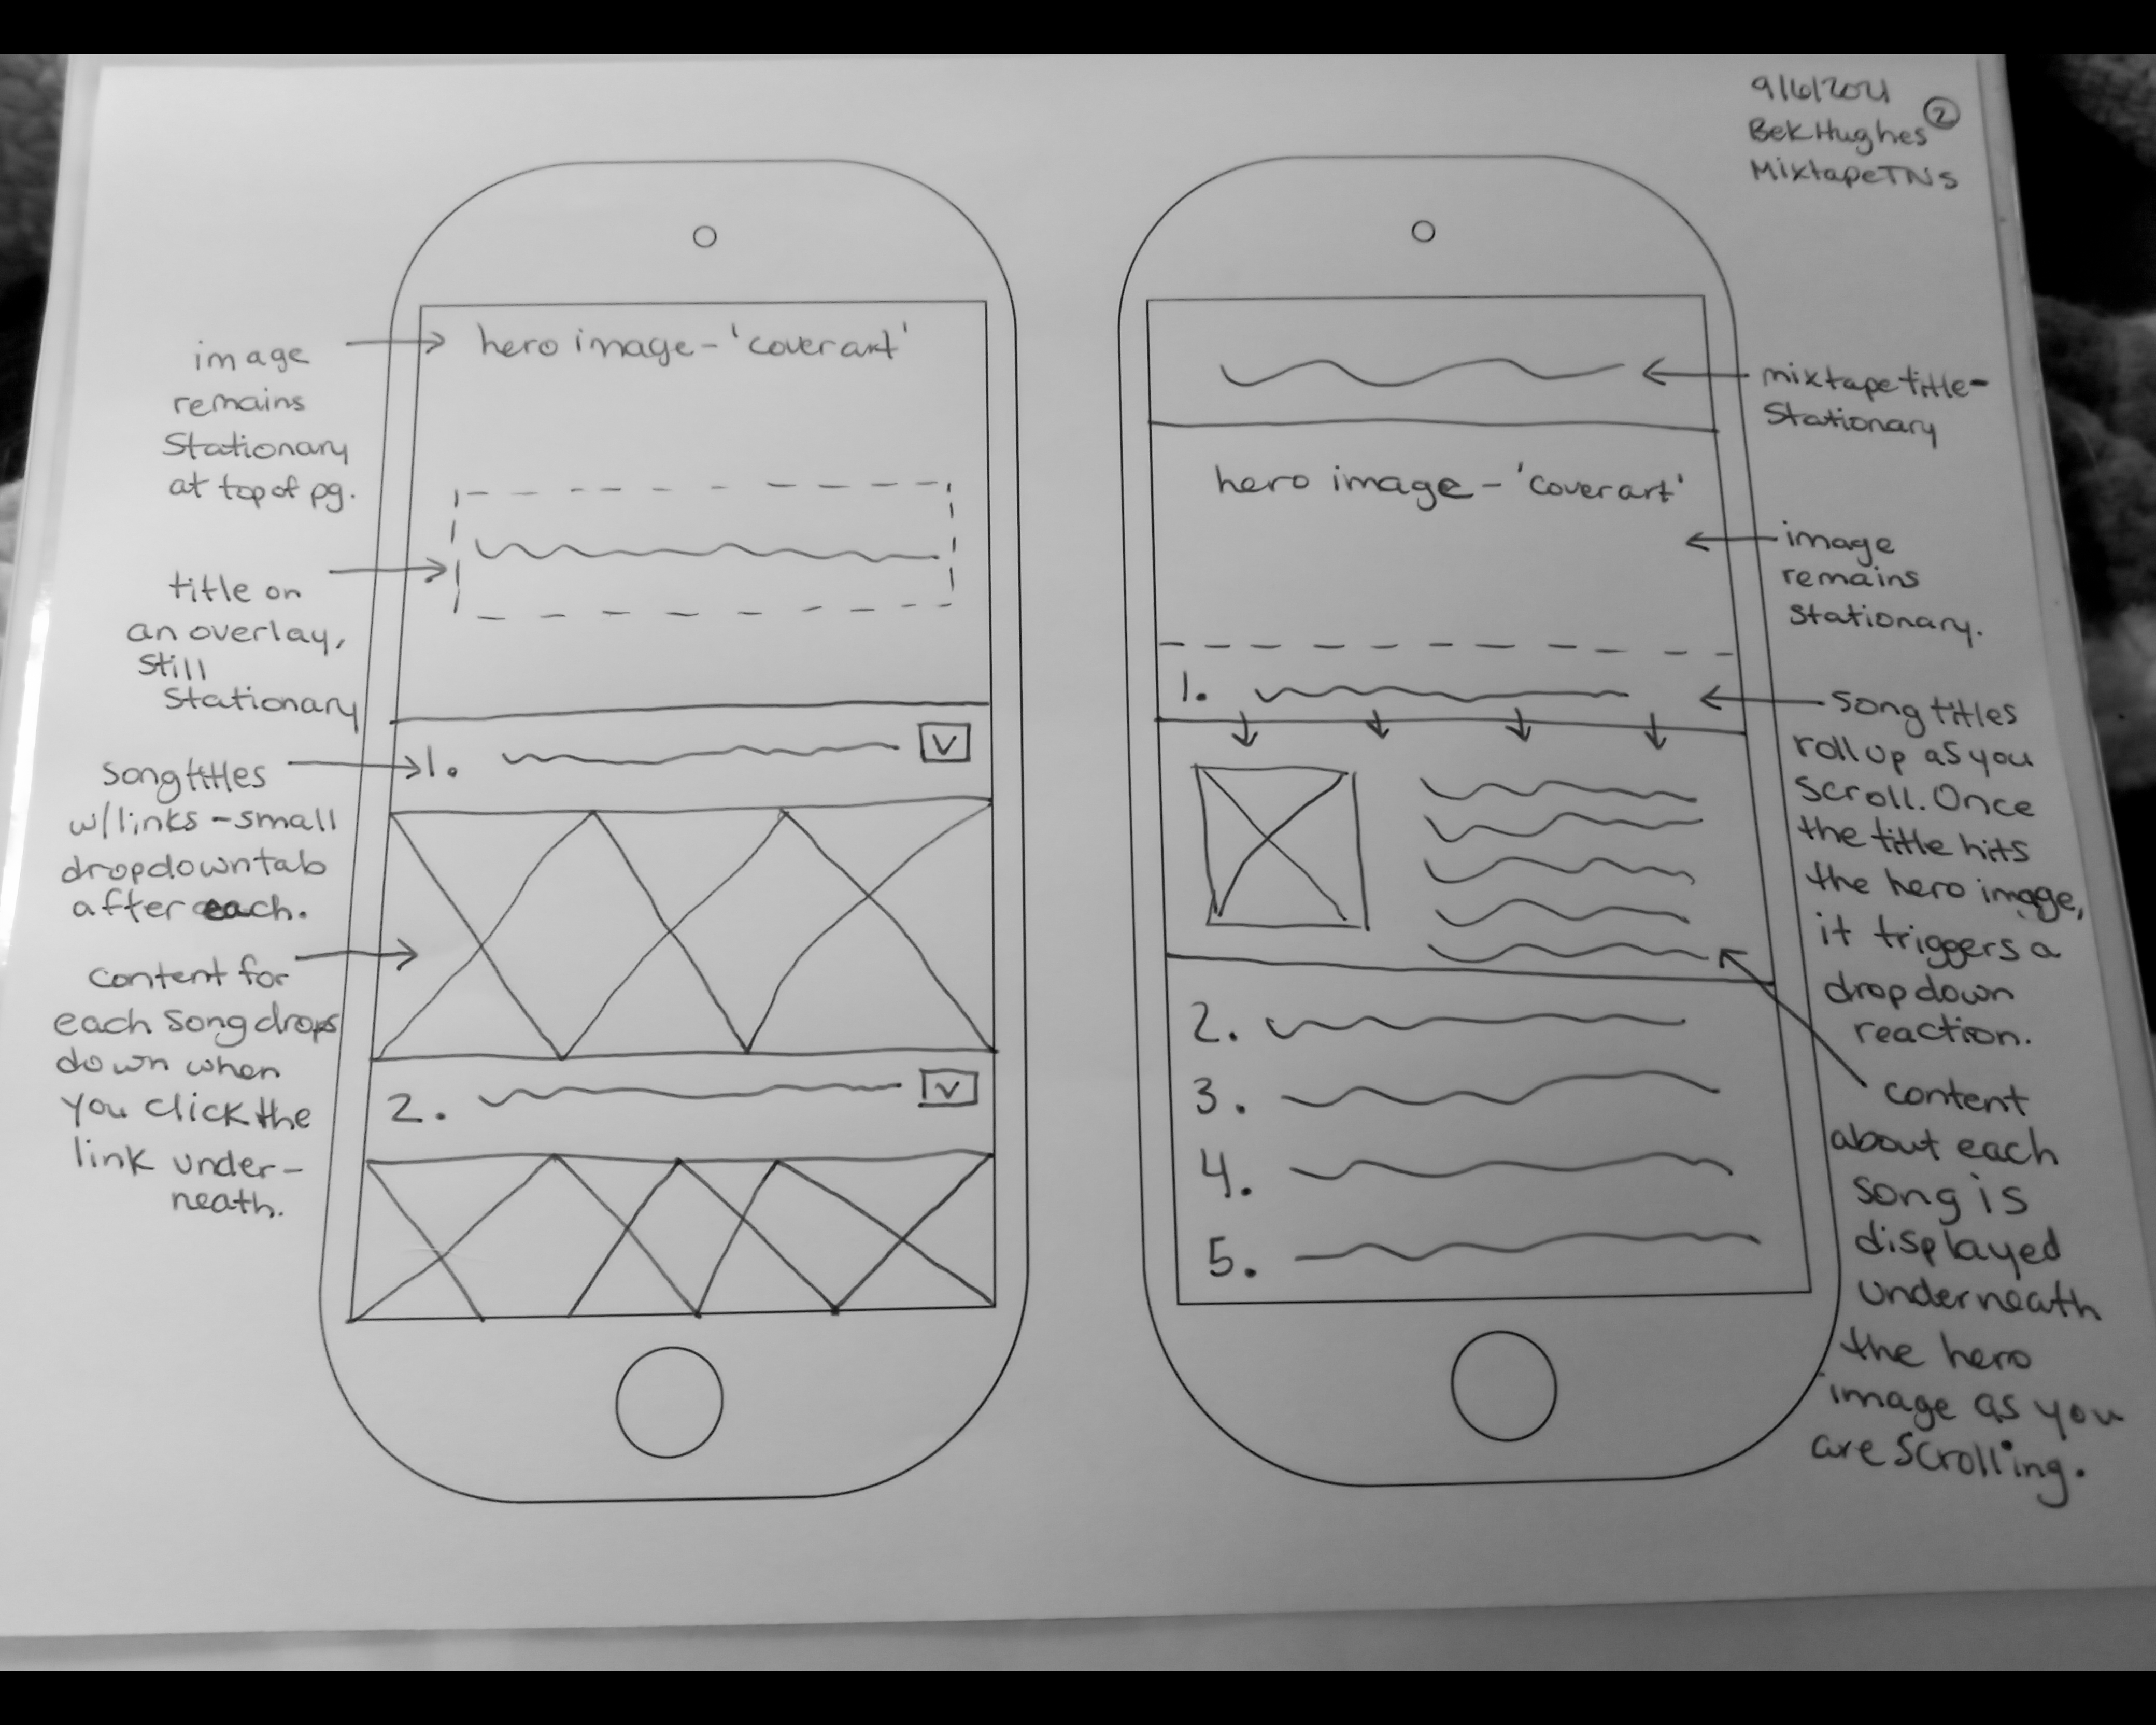 9/6/2021
②
Bek Hughes
MixtapeTNs
image
remains
Stationary
at top of pg.
title on
an overlay,
still
stationary
song titles
w/links - small
dropdown tab
after each.
content for
each song drops
down when
you click the
link under-
neath.
hero image - 'cover art'
1.
V
2.
V
hero image - 'cover art'
1.
2.
3.
4.
5.
mixtape title -
Stationary
image
remains
stationary.
song titles
roll up as you
scroll. Once
the title hits
the hero image,
it triggers a
dropdown
reaction.
content
about each
song is
displayed
underneath
the hero
image as you
are scrolling.